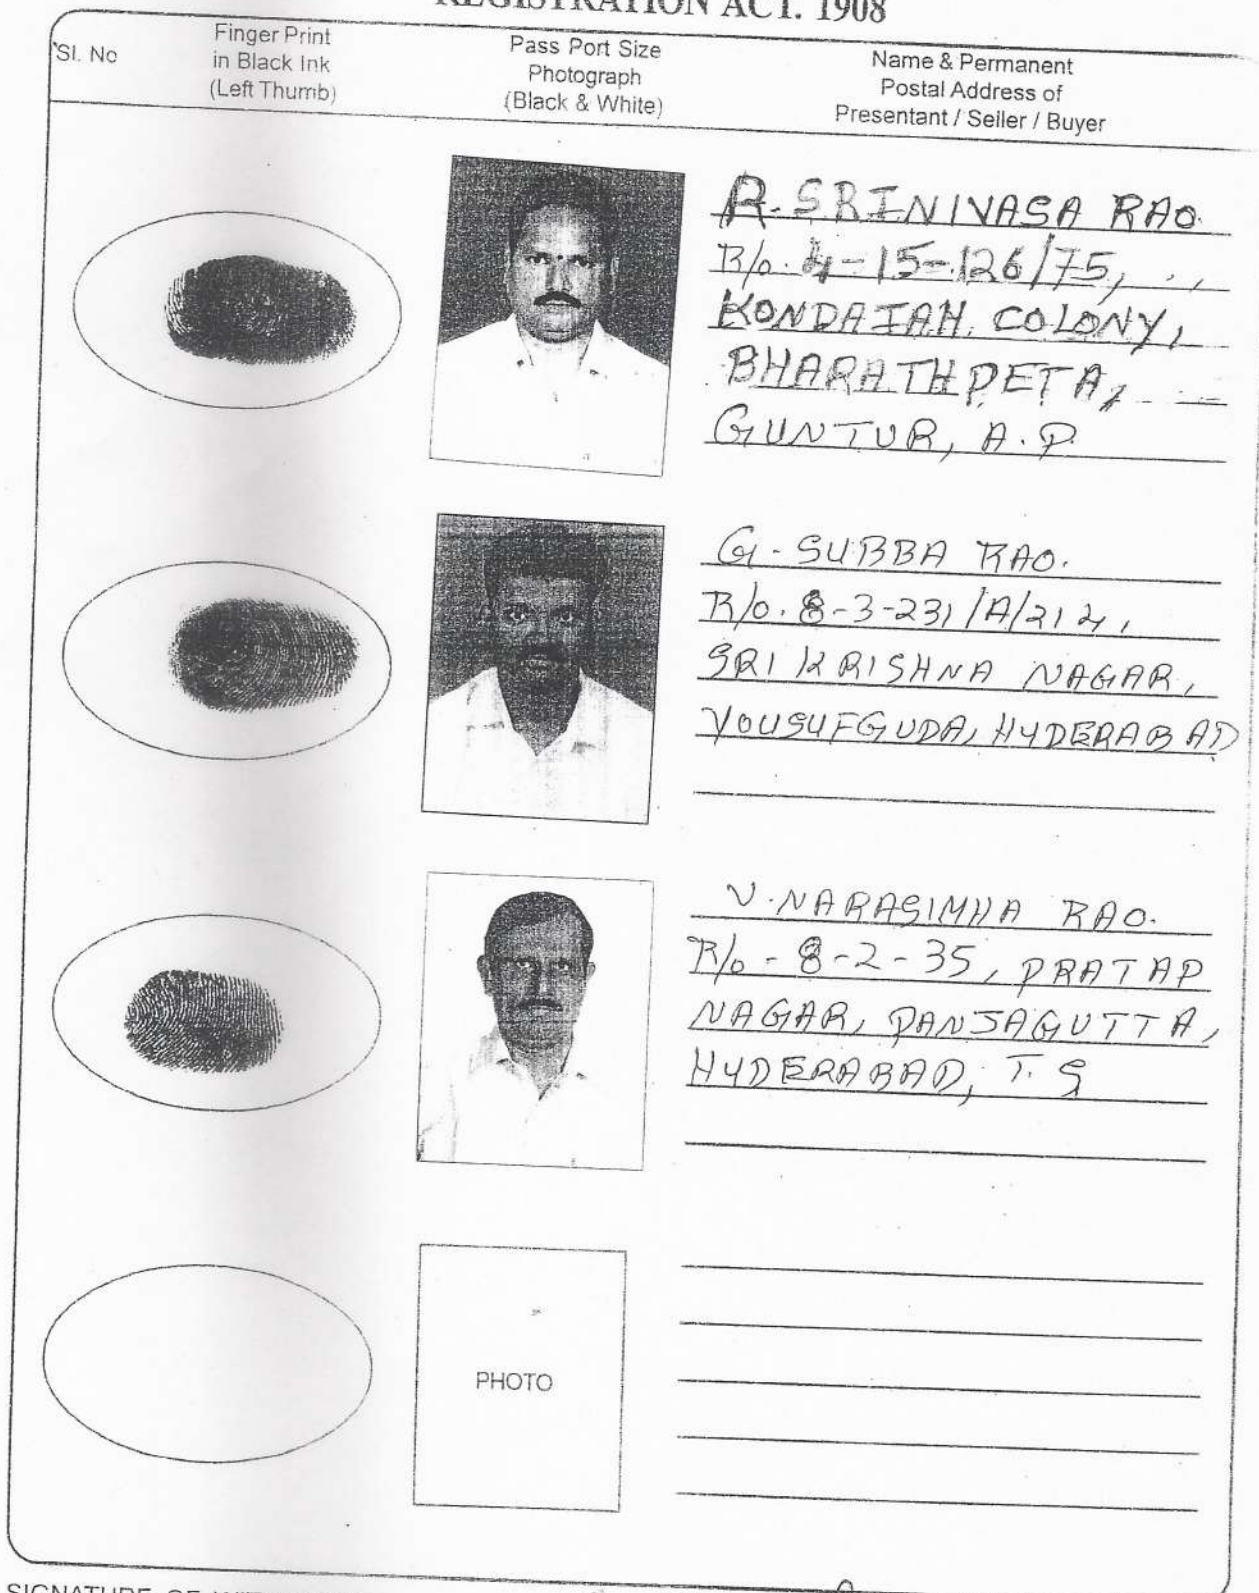 REGISTRATION ACT. 1908
Sl. No
Finger Print
in Black Ink
(Left Thumb)
Pass Port Size
Photograph
(Black & White)
Name & Permanent
Postal Address of
Presentant / Seller / Buyer
R. SRINIVASA RAO.
R/o. 4-15-126/75,
KONDAIAH COLONY,
BHARATHPETA,
GUNTUR, A.P.
G. SUBBA RAO.
R/o. 8-3-231/A/214,
SRI KRISHNA NAGAR,
YOUSUFGUDA, HYDERABAD
V. NARASIMHA RAO.
R/o - 8-2-35, PRATAP
NAGAR, PANJAGUTTA,
HYDERABAD, T.S
PHOTO
SIGNATURE OF